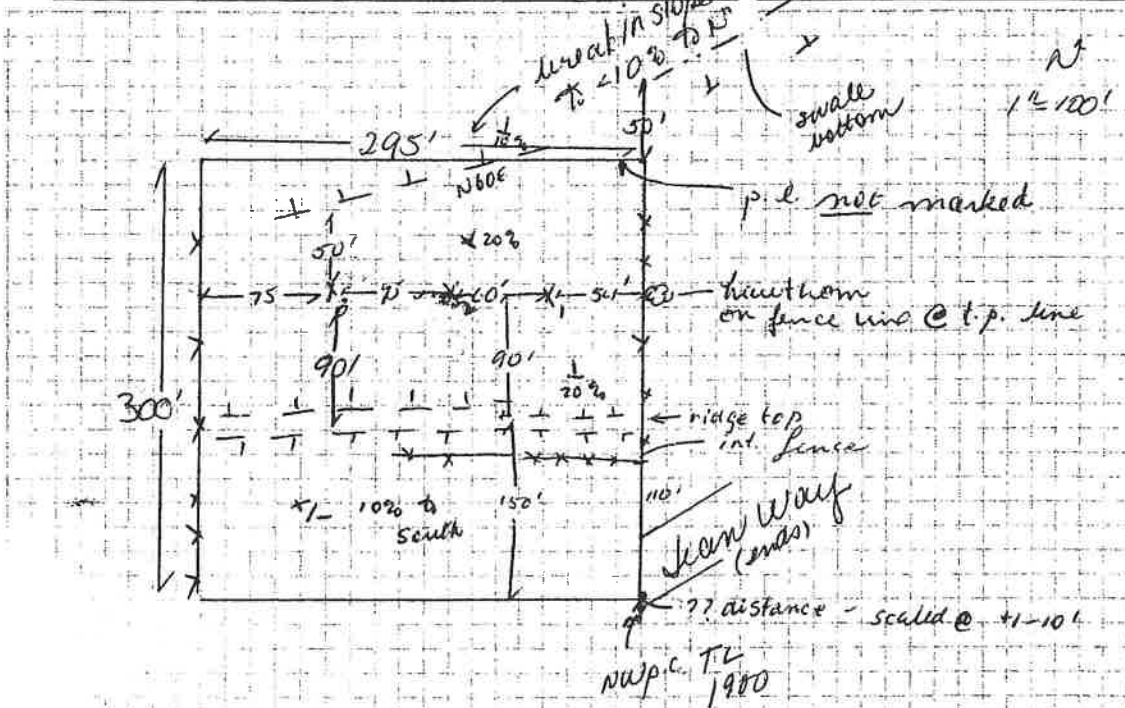 break in slope
to <10% to N
50'
swale
bottom
N
1"=100'
295'
N60E
p.l. not marked
50'
20%
75
60'
50'
hawthorn
on fence line @ t.p. line
90'
90'
20%
300'
ridge top
int. fence
+/- 10% to
south
150'
110'
Way
(ends)
?? distance - scaled @ +/-10'
NW p.c. TL
1900